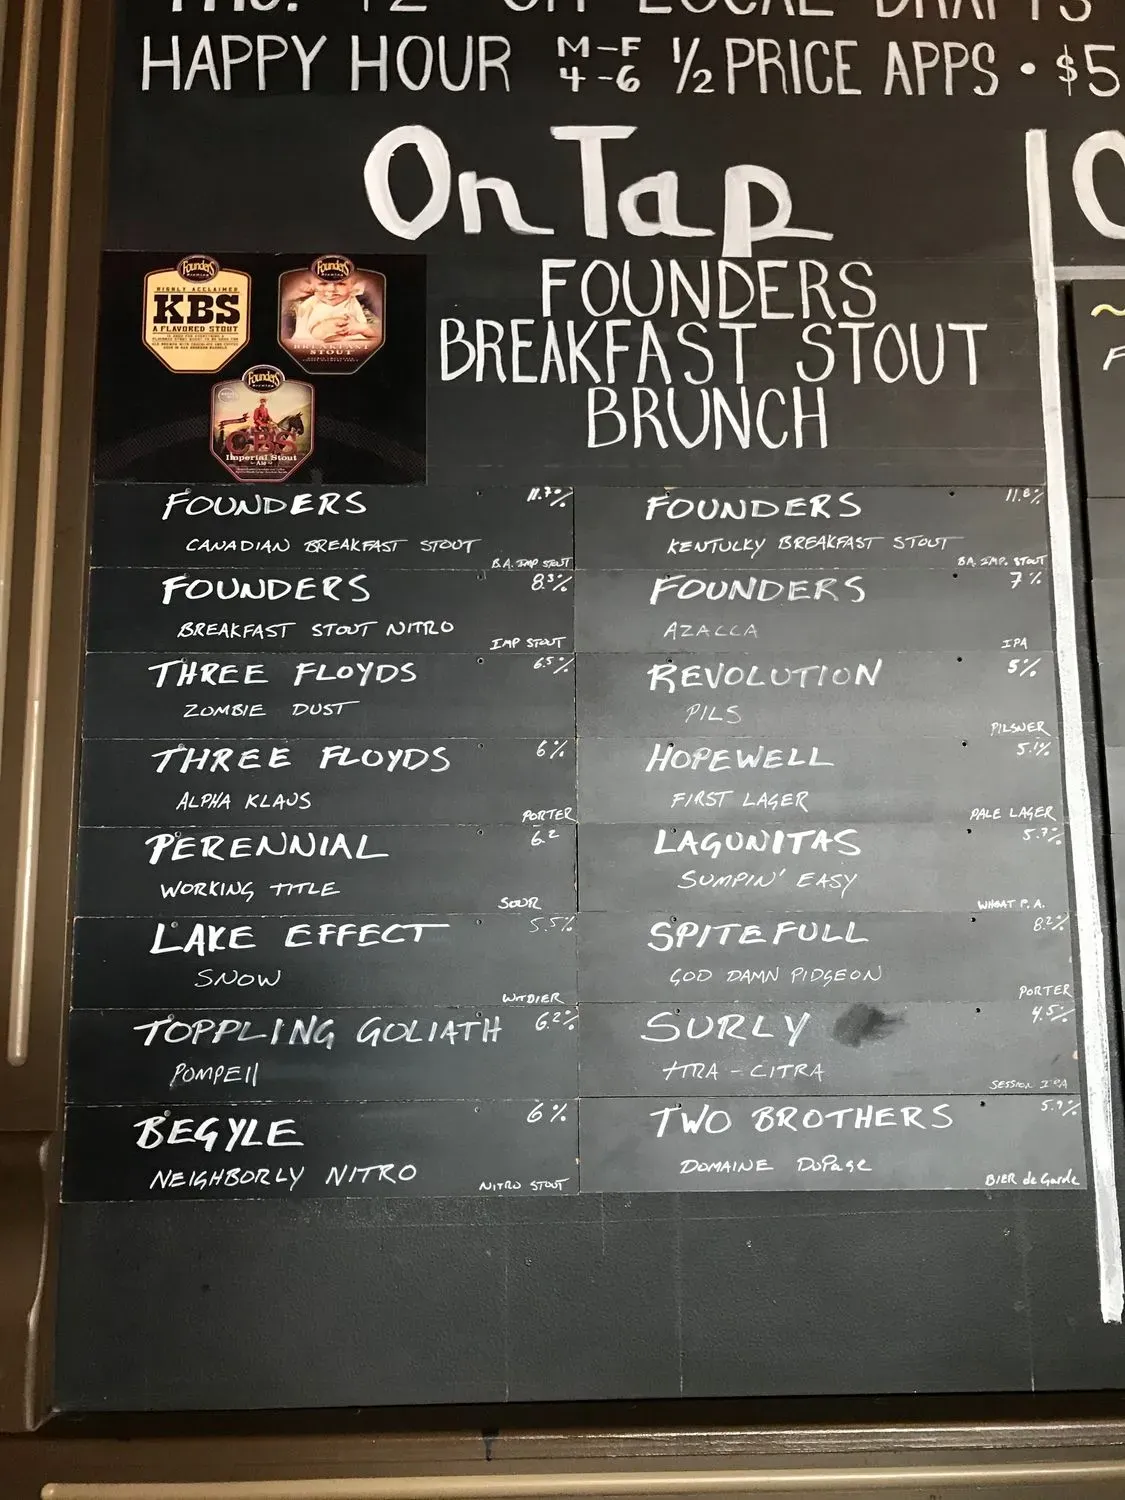 HAPPY HOUR M-F 4-6 1/2 PRICE APPS • $5
On Tap
FOUNDERS
BREAKFAST STOUT
BRUNCH
FOUNDERS
HIGHLY ACCLAIMED
KBS
A FLAVORED STOUT
FOUNDERS
BREAKFAST
STOUT
FOUNDERS
CBS
Imperial Stout
Ale
FOUNDERS 11.7%
CANADIAN BREAKFAST STOUT
B.A. IMP STOUT
FOUNDERS 8.3%
BREAKFAST STOUT NITRO
IMP STOUT
THREE FLOYDS 6.5%
ZOMBIE DUST
THREE FLOYDS 6%
ALPHA KLAUS
PORTER
PERENNIAL 6.2
WORKING TITLE
SOUR
LAKE EFFECT 5.5%
SNOW
WITBIER
TOPPLING GOLIATH 6.2%
POMPEII
BEGYLE 6%
NEIGHBORLY NITRO
NITRO STOUT
FOUNDERS 11.8%
KENTULKY BREAKFAST STOUT
B.A. IMP. STOUT
FOUNDERS 7%
AZACCA
IPA
REVOLUTION 5%
PILS
PILSNER
HOPEWELL 5.1%
FIRST LAGER
PALE LAGER
LAGUNITAS 5.7%
SUMPIN' EASY
WHEAT P.A.
SPITEFULL 8.2%
GOD DAMN PIDGEON
PORTER
SURLY 4.5%
XTRA-CITRA
SESSION IPA
TWO BROTHERS 5.9%
DOMAINE DuPage
BIER de Garde